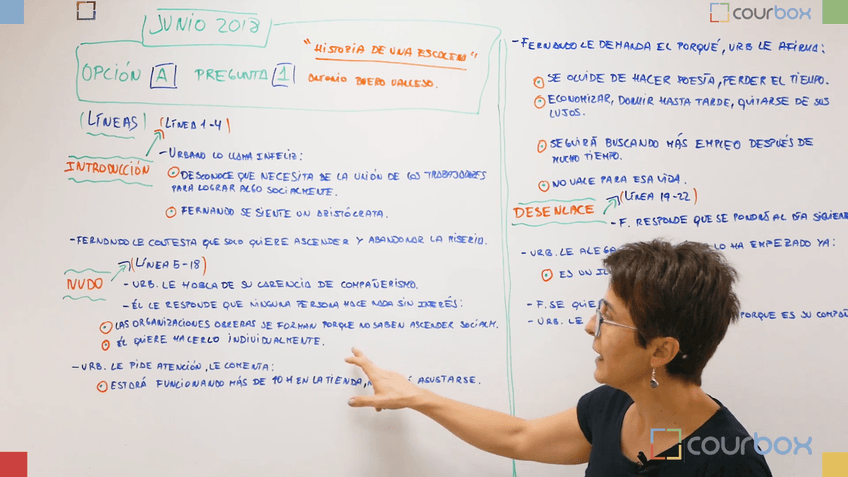 JUNIO 2018
OPCIÓN A PREGUNTA 1
"HISTORIA DE UNA ESCALERA"
ANTONIO BUERO VALLEJO.
(LÍNEAS)
INTRODUCCIÓN
(LÍNEA 1-4)
- URBANO LO LLAMA INFELIZ:
DESCONOCE QUE NECESITA DE LA UNIÓN DE LOS TRABAJADORES
PARA LOGRAR ALGO SOCIALMENTE.
FERNANDO SE SIENTE UN ARISTÓCRATA.
- FERNANDO LE CONTESTA QUE SOLO QUIERE ASCENDER Y ABANDONAR LA MISERIA.
NUDO
(LÍNEA 5-18)
- URB. LE HABLA DE SU CARENCIA DE COMPAÑERISMO.
- ÉL LE RESPONDE QUE NINGUNA PERSONA HACE NADA SIN INTERÉS:
LAS ORGANIZACIONES OBRERAS SE FORMAN PORQUE NO SABEN ASCENDER SOCIALM.
ÉL QUIERE HACERLO INDIVIDUALMENTE.
- URB. LE PIDE ATENCIÓN, LE COMENTA:
ESTARÁ FUNCIONANDO MÁS DE 10 H EN LA TIENDA, AGUSTARSE.
- FERNANDO LE DEMANDA EL PORQUÉ, URB LE AFIRMA:
SE OLVIDE DE HACER POESÍA, PERDER EL TIEMPO.
ECONOMIZAR, DORMIR HASTA TARDE, QUITARSE DE SUS
LUJOS.
SEGUIRÁ BUSCANDO MÁS EMPLEO DESPUÉS DE
MUCHO TIEMPO.
NO VALE PARA ESA VIDA.
DESENLACE
(LÍNEA 19-22)
- F. RESPONDE QUE SE PONDRÁ AL DÍA
- URB. LE LO HA EMPEZADO YA:
ES UN
- F. SE
- URB. LE PORQUE ES SU
courbox
courbox